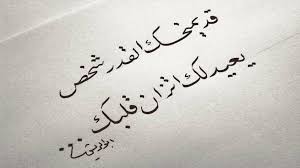 قد يمنحك القدر شخص
يعيد لك اتزان قلبك